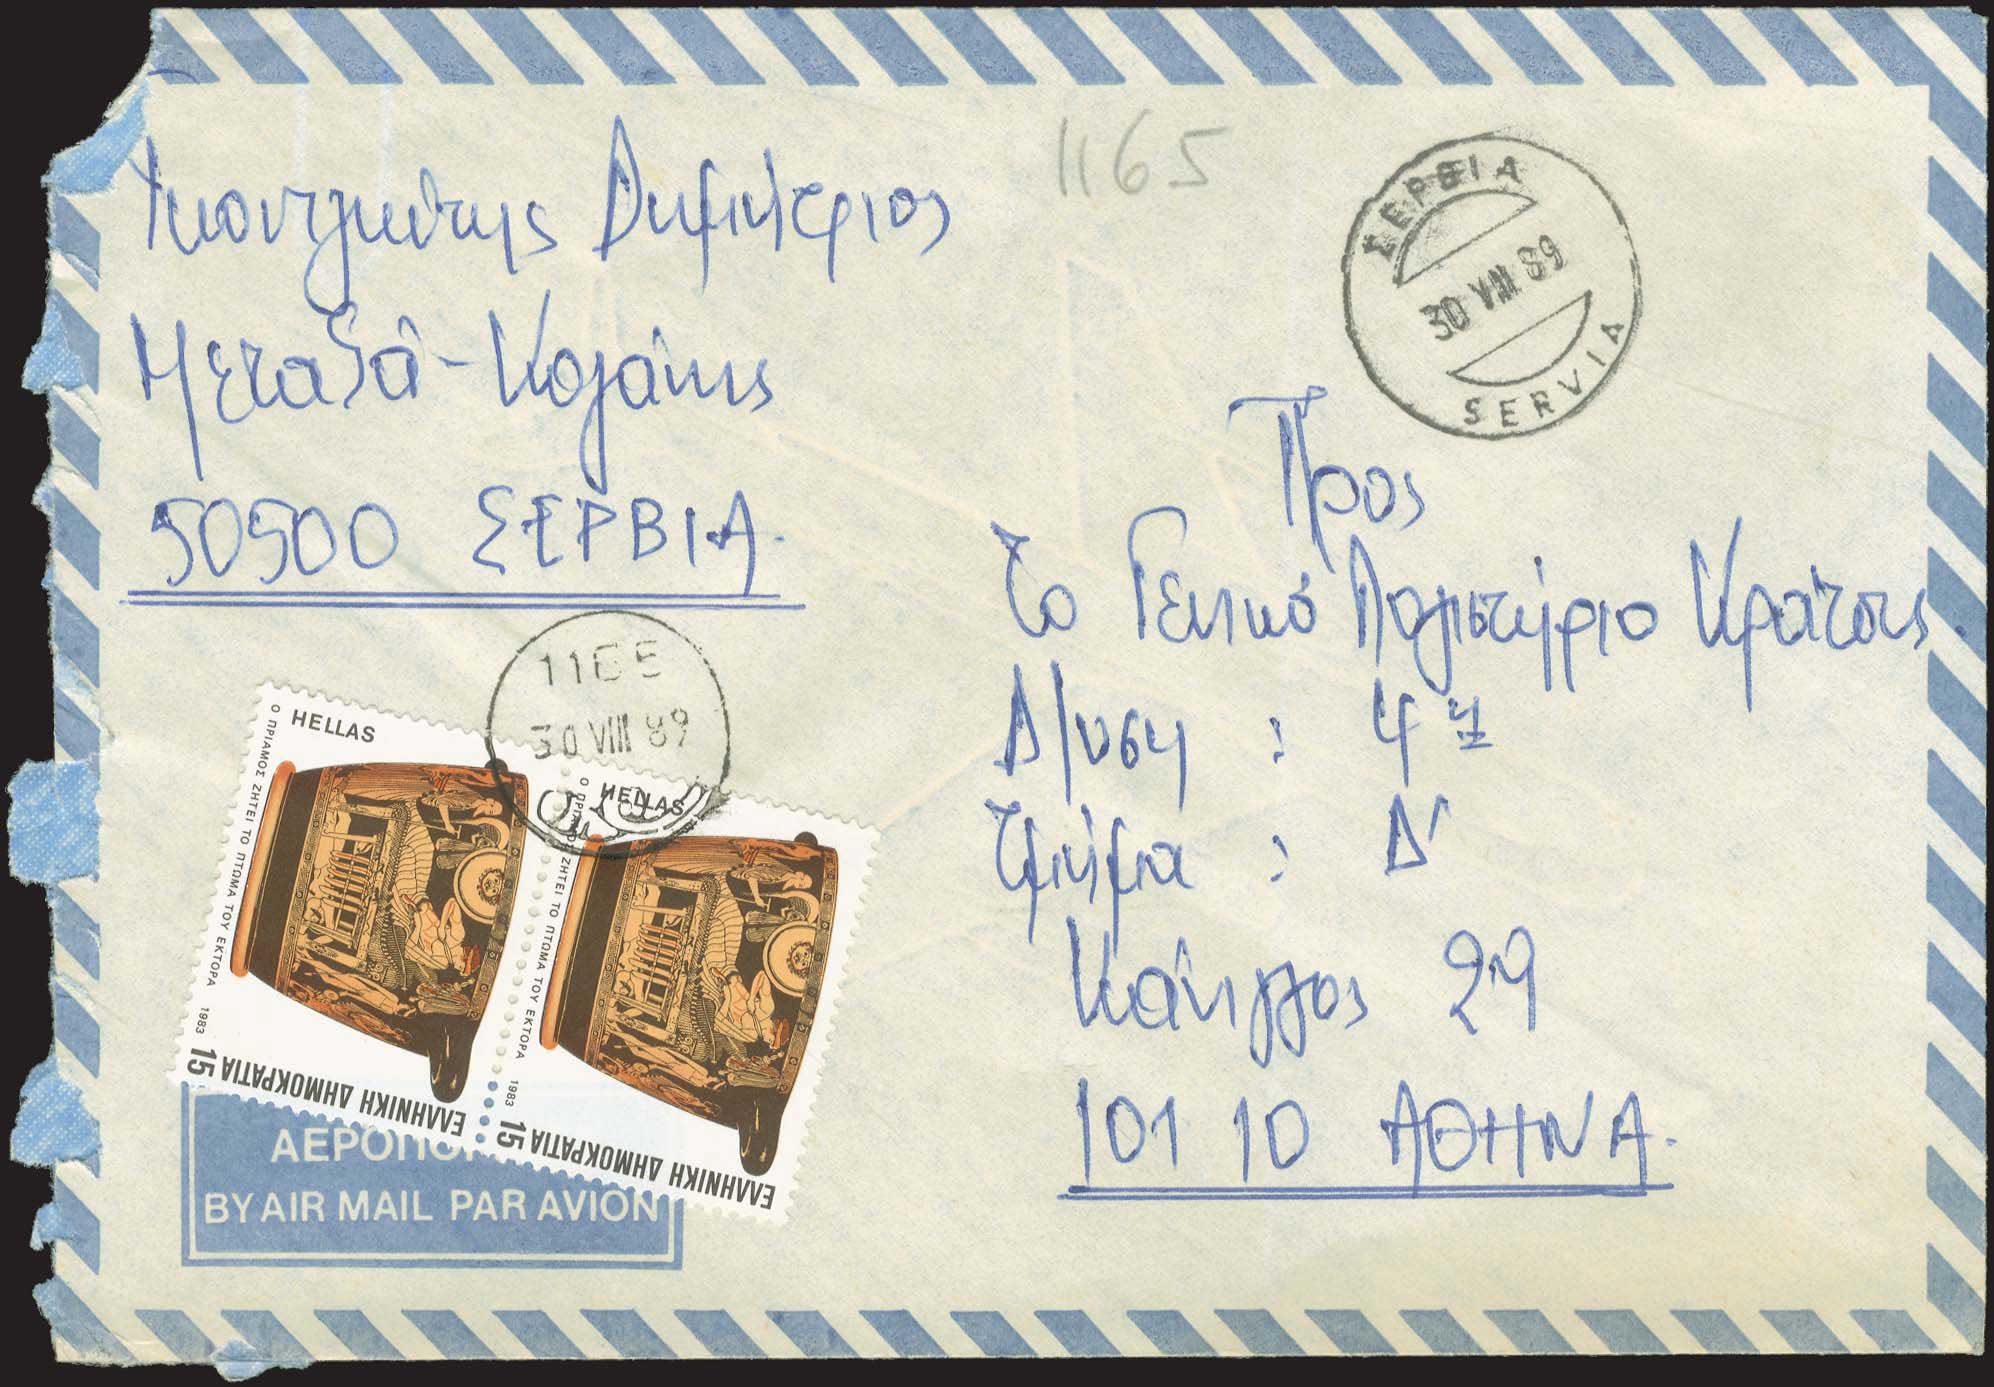 1165
Δημήτριος
Μεταξά - Κοζάνης
50500 ΣΕΡΒΙΑ.
ΣΕΡΒΙΑ
30 VIII 89
SERVIA
Προς
Το Γενικό Λογιστήριο Κράτους.
Δ/νση : 47
Τμήμα : Δ'
Κάνιγγος 29
101 10 ΑΘΗΝΑ.
30 VIII 89
HELLAS
Ο ΠΡΙΑΜΟΣ ΖΗΤΕΙ ΤΟ ΠΤΩΜΑ ΤΟΥ ΕΚΤΟΡΑ 1983
15 ΕΛΛΗΝΙΚΗ ΔΗΜΟΚΡΑΤΙΑ
HELLAS
Ο ΠΡΙΑΜΟΣ ΖΗΤΕΙ ΤΟ ΠΤΩΜΑ ΤΟΥ ΕΚΤΟΡΑ 1983
15 ΕΛΛΗΝΙΚΗ ΔΗΜΟΚΡΑΤΙΑ
BY AIR MAIL PAR AVION